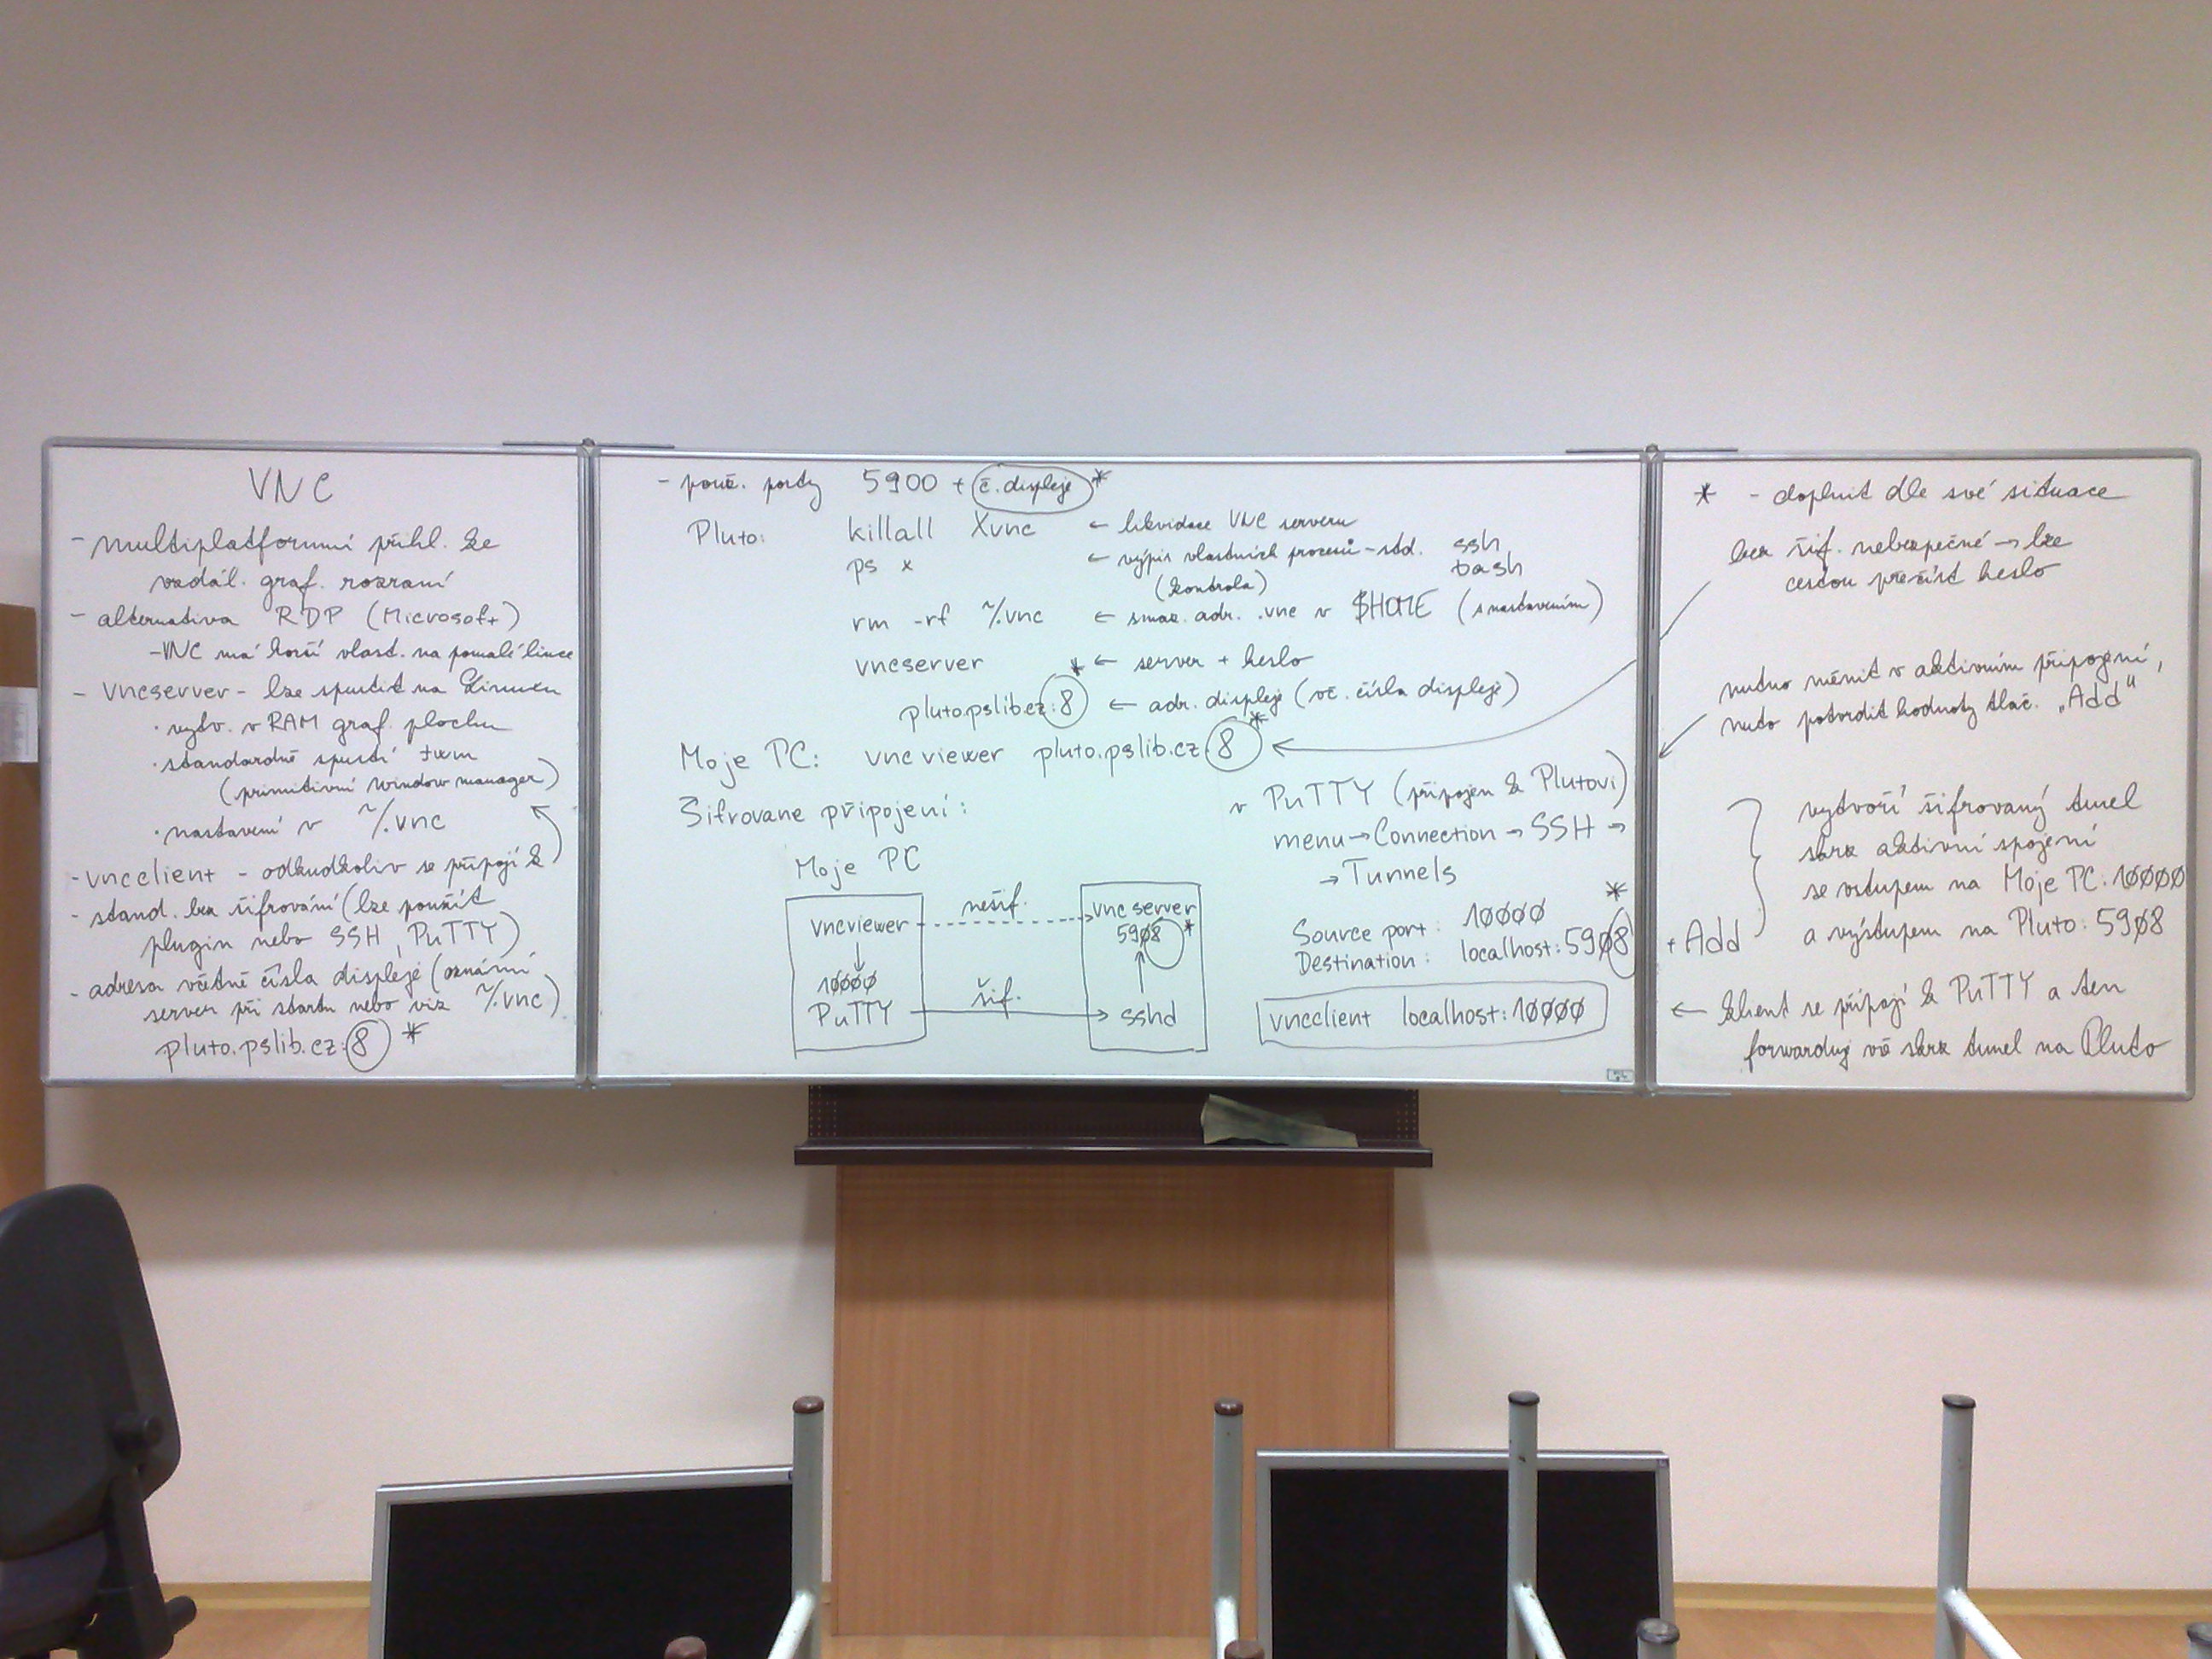 VNC
- multiplatformní přihl. ke
vzdál. graf. rozraní
- alternativa RDP (Microsoft)
- VNC má horší vlast. na pomalé lince
- vncserver - lze spustit na Linuxu
· vytv. v RAM graf. plochu
· standardně spustí twm
(primitivní window manager)
· nastavení v ~/.vnc
- vncclient - odkudkoliv se připojí k
- stand. bez šifrování (lze použít
plugin nebo SSH, PuTTY)
- adresa včetně čísla displeje (oznámí
server při startu nebo viz ~/.vnc)
pluto.pslib.cz:8 *
- použ. porty 5900 + č. displeje *
Pluto: killall Xvnc ← likvidace VNC serveru
ps x ← výpis vlastních procesů - std. ssh
(kontrola) bash
rm -rf ~/.vnc ← smaz. adr. .vnc v $HOME (s nastavením)
vncserver ← server + heslo
pluto.pslib.cz:8 * ← adr. displeje (vč. čísla displeje)
Moje PC: vncviewer pluto.pslib.cz:8 *
Šifrované připojení:
v PuTTY (připojen k Plutovi)
menu → Connection → SSH →
→ Tunnels
Source port: 10000
Destination: localhost:5908 *
vncclient localhost:10000
Moje PC
vncviewer
10000
PuTTY
nešif.
šif.
vncserver
5908 *
sshd
* - doplnit dle své situace
bez šif. nebezpečné → lze
cestou přečíst heslo
nutno měnit v aktivním připojení,
nuto potvrdit hodnoty tlač. „Add"
+ Add
vytvoří šifrovaný tunel
skrz aktivní spojení
se vstupem na Moje PC:10000
a výstupem na Pluto:5908
← klient se připojí k PuTTY a ten
forwarduj vše skrz tunel na Pluto